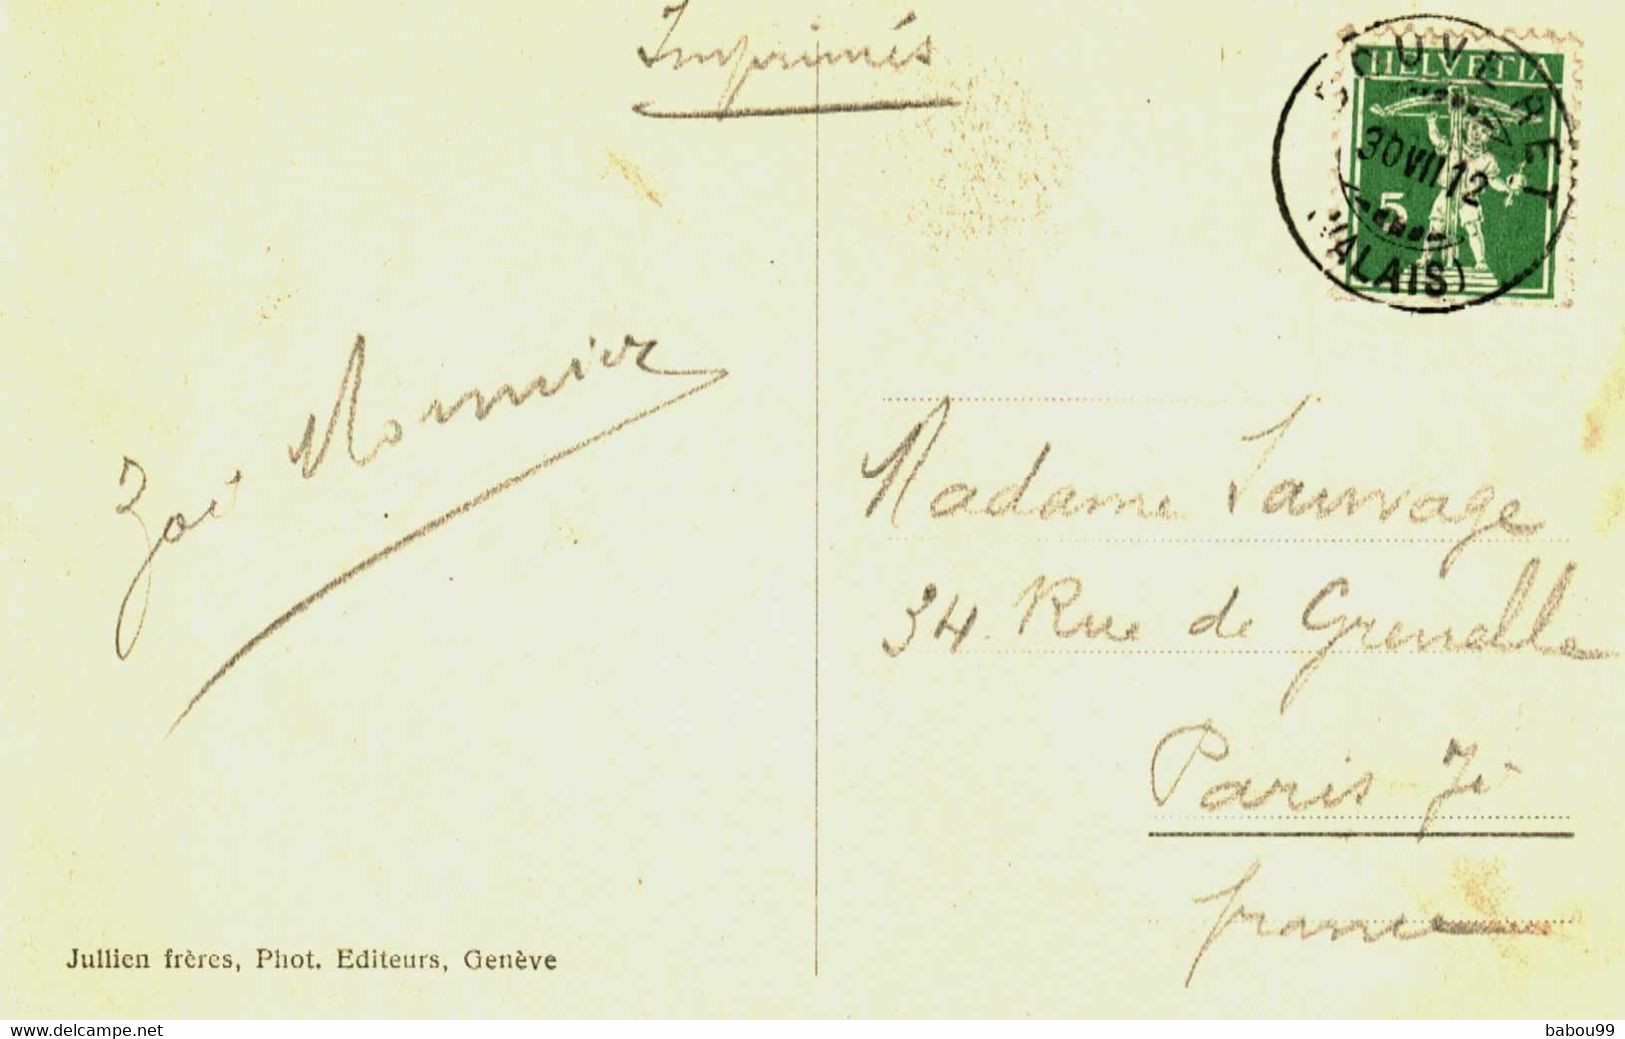 Imprimés
BOUVERET
HELVETIA
30 VII.12
5
(VALAIS)
Zoé Monnier
Madame Sauvage
34 Rue de Grenelle
Paris 7è
france
Jullien frères, Phot. Editeurs, Genève
www.delcampe.net
babou99